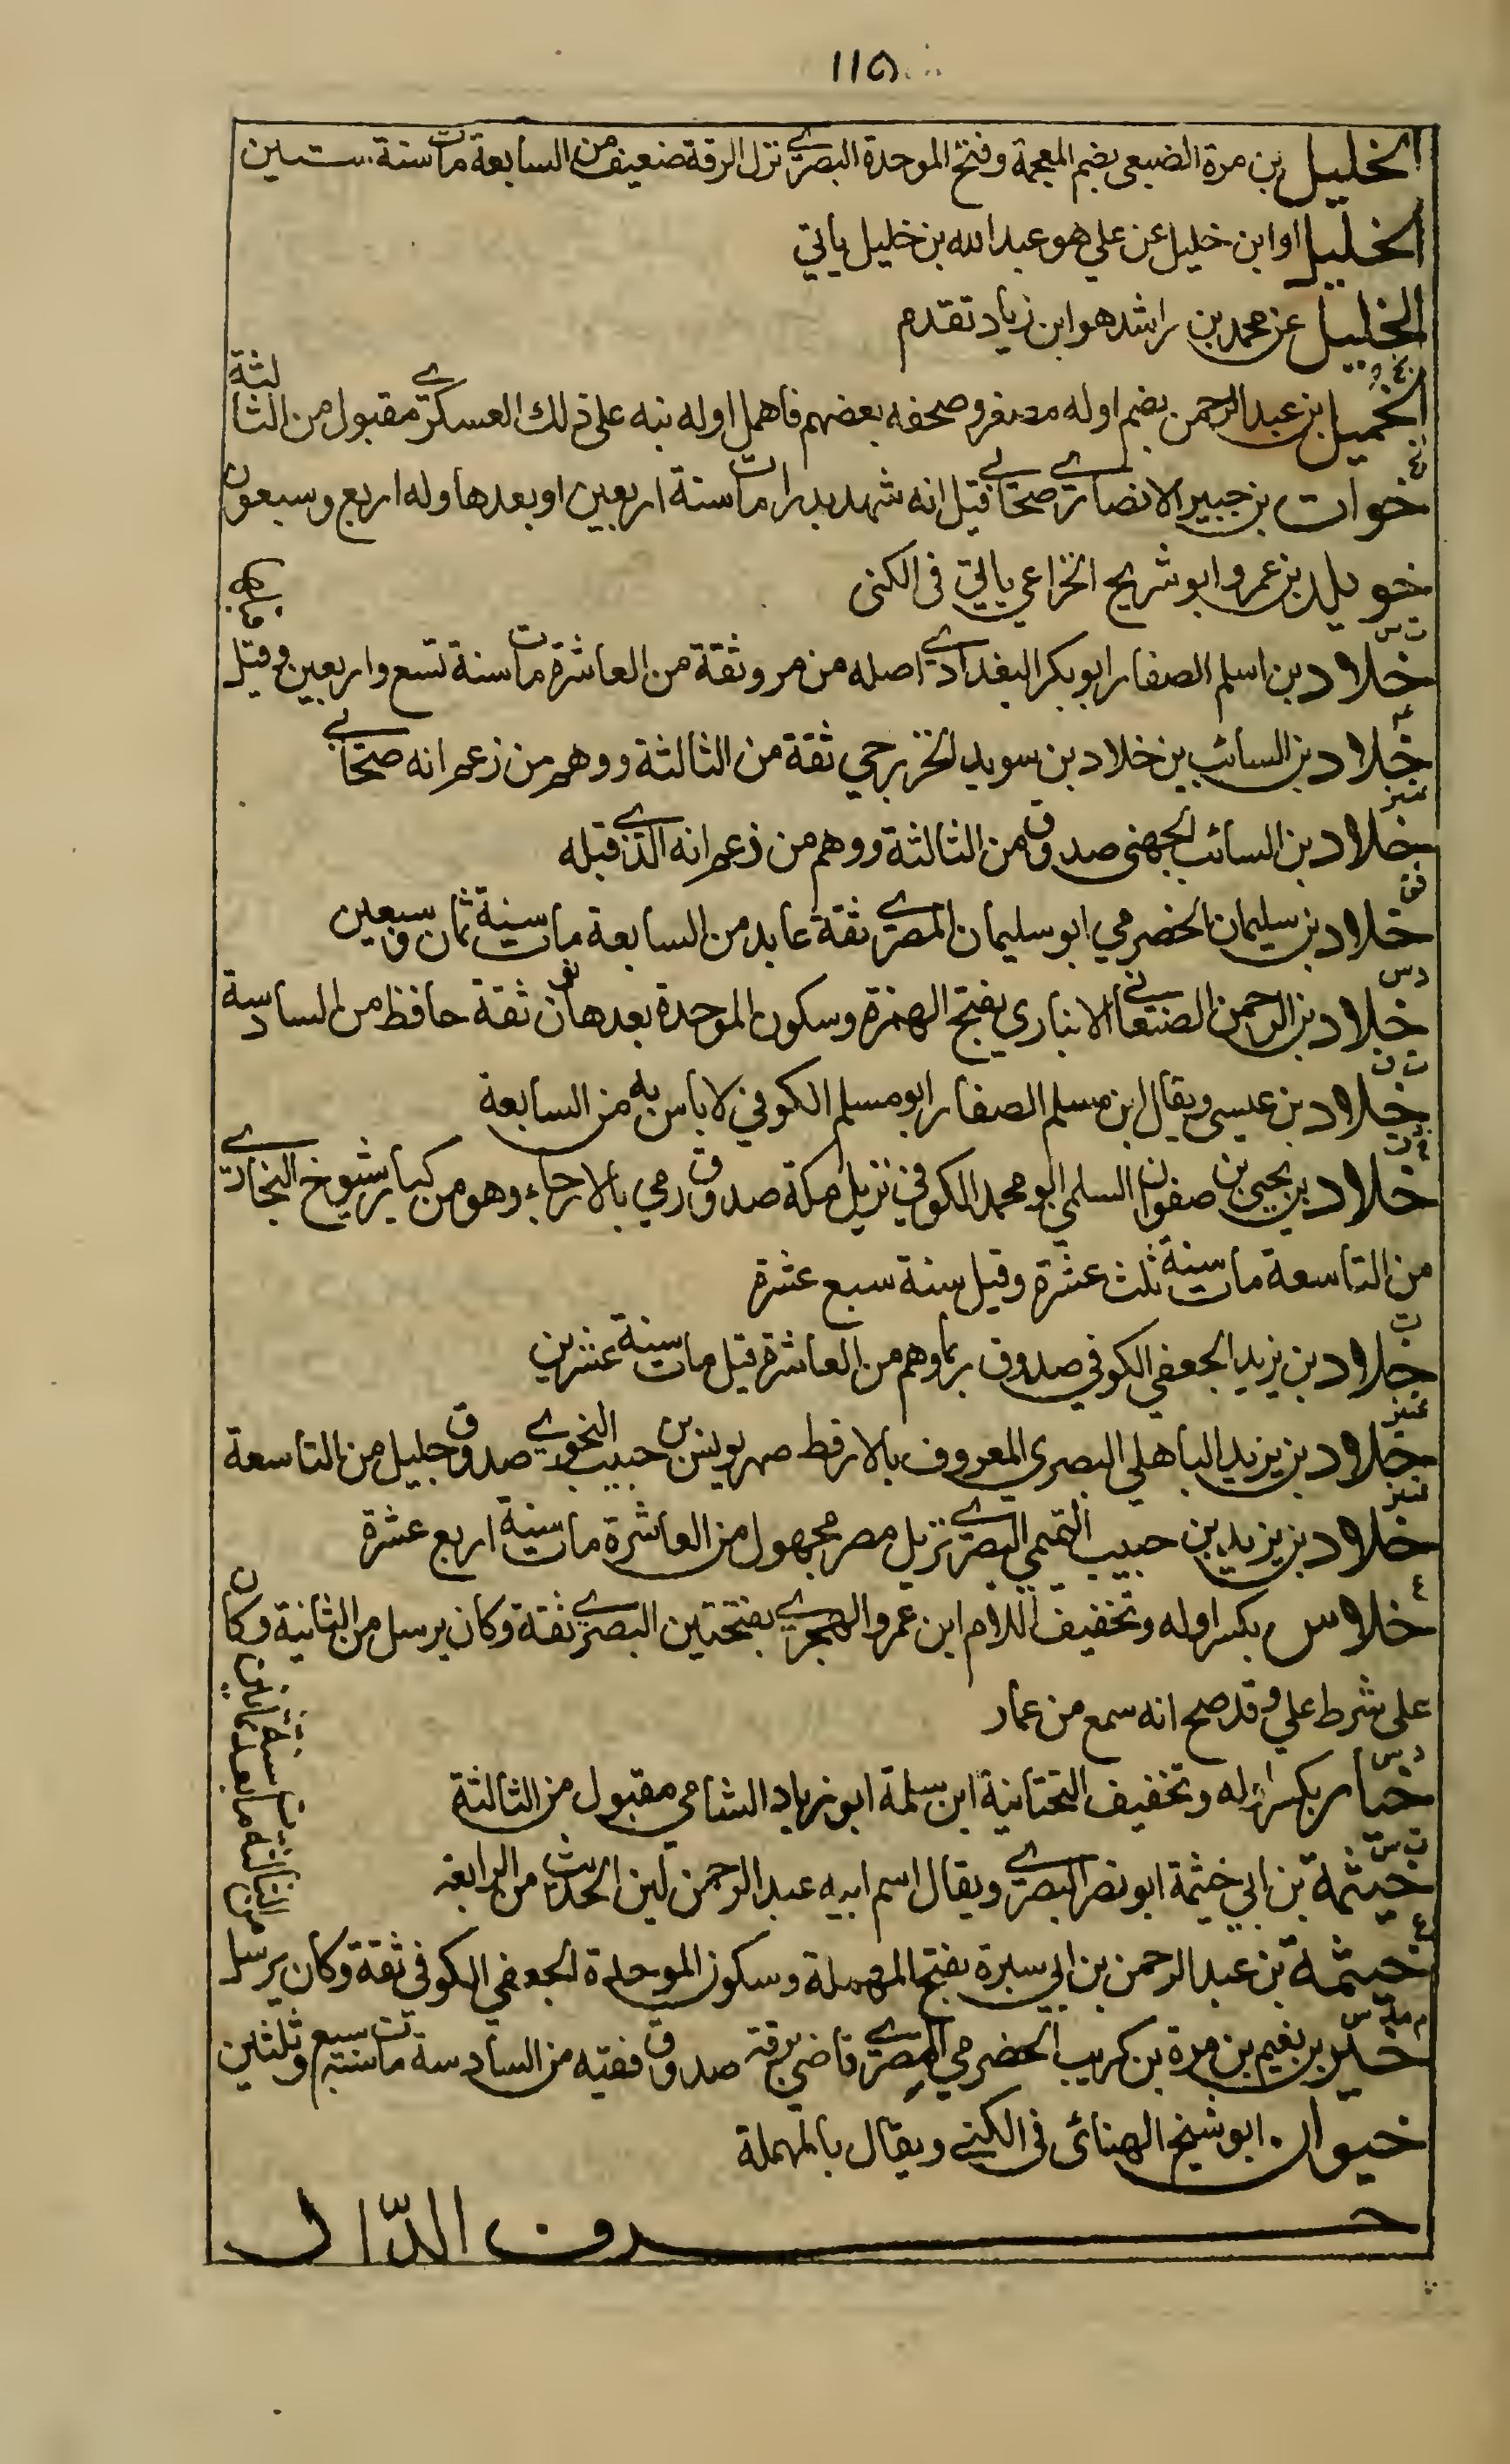 ١١٥
الخليل بن مرة الضبعي بضم المعجمة وفتح الموحدة البصري نزل الرقة ضعيف من السابعة مات سنة ستين
الخليل او ابن خليل عن علي هو عبد الله بن خليل ياتي
الخليل عن محمد بن راشد هو ابن زياد تقدم
الخميل بن عبد الرحمن بضم اوله مصغر وصحفه بعضهم فاهمل اوله نبه على ذلك العسكري مقبول من الثالثة
خوات بن جبير الانصاري صحابي قيل انه شهد بدرا مات سنة اربعين او بعدها وله اربع وسبعون
خويلد بن عمرو ابو شريح الخزاعي ياتي في الكنى
ت س
خلاد بن اسلم الصفار ابو بكر البغدادي اصله من مرو ثقة من العاشرة مات سنة تسع واربعين وقيل قبلها
خلاد بن السائب بن خلاد بن سويد الخزرجي ثقة من الثالثة ووهم من زعم انه صحابي
خلاد بن السائب الجهني صدوق من الثالثة ووهم من زعم انه الذي قبله
خلاد بن سليمان الحضرمي ابو سليمان المصري ثقة عابد من السابعة مات سنة ثمان وسبعين
د س
خلاد بن الرحمن الصنعاني الابناري بفتح الهمزة وسكون الموحدة بعدها نون ثقة حافظ من السادسة
ت ق
خلاد بن عيسى ويقال ابن مسلم الصفار ابو مسلم الكوفي لا باس به من السابعة
خلاد بن يحيى بن صفوان السلمي ابو محمد الكوفي نزيل مكة صدوق رمي بالارجاء وهو من كبار شيوخ البخاري
من التاسعة مات سنة ثلث عشرة وقيل سنة سبع عشرة
ت
خلاد بن يزيد الجعفي الكوفي صدوق ربما وهم من العاشرة قيل مات سنة عشرين
خلاد بن يزيد الباهلي البصري المعروف بالارقط صهر يونس بن حبيب النحوي صدوق جليل من التاسعة
خلاد بن يزيد بن حبيب التميمي البصري نزيل مصر مجهول من العاشرة مات سنة اربع عشرة
ع
خلاس بكسر اوله وتخفيف اللام ابن عمرو الهجري بفتحتين البصري ثقة وكان يرسل من الثانية وكان
على شرط علي وقد صح انه سمع من عمار
د س
خيار بكسر اوله وتخفيف التحتانية ابن سلمة ابو زياد الشامي مقبول من الثالثة
ت س
خيثمة بن ابي خيثمة ابو نصر البصري ويقال اسم ابيه عبد الرحمن لين الحديث من الرابعة
ع
خيثمة بن عبد الرحمن بن ابي سبرة بفتح المهملة وسكون الموحدة الجعفي الكوفي ثقة وكان يرسل
من الثالثة مات بعد ثمانين
خير بن نعيم بن مرة بن كريب الحضرمي المصري قاضي برقة صدوق فقيه من السادسة مات سنة سبع وثلثين
خيوان ابو شيخ الهنائي في الكنى ويقال بالمهملة
حرف الدّال